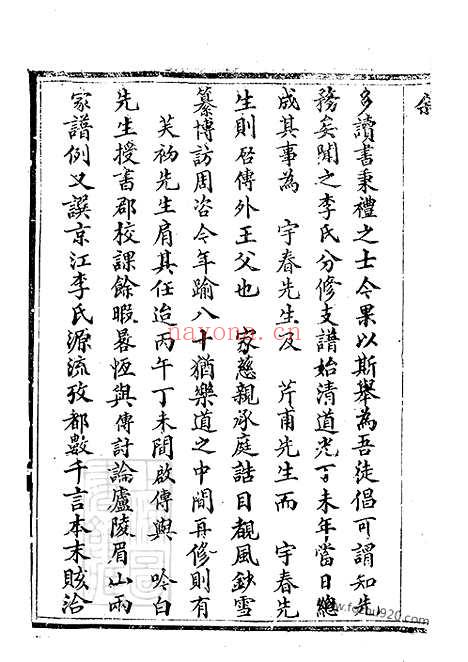 多讀書秉禮之士今果以斯舉為吾徒倡可謂知先
務矣聞之李氏分修支譜始清道光丁未年當日總
成其事為 宇春先生及 芹甫先生而 宇春先
生則啟傳外王父也 家慈親承庭誥目覩風鈔雪
纂博訪周咨今年踰八十猶樂道之中間再修則有
芙初先生肩其任迨丙午丁未間啟傳與 吟白
先生授書郡校課餘暇晷恆與傳討論廬陵眉山兩
家譜例又譔京江李氏源流攷都數千言本末賅洽
nayona.cn